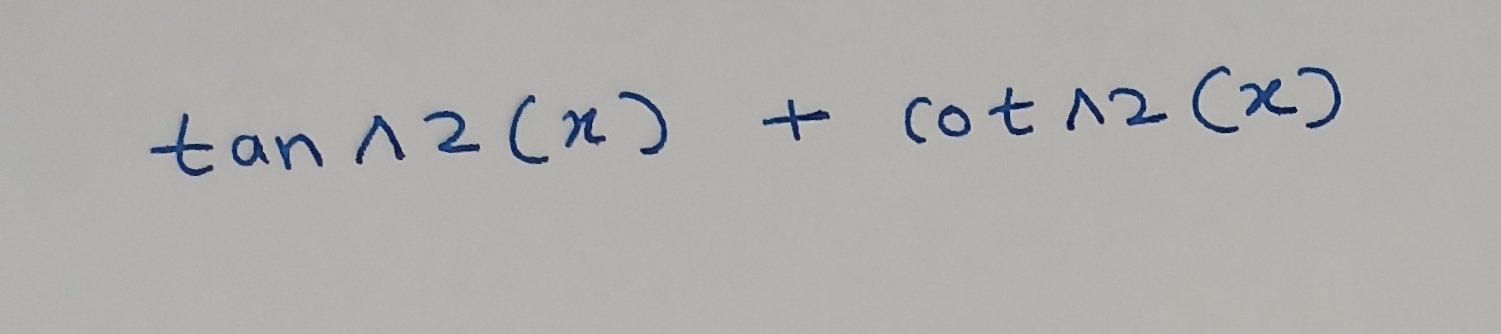 tan ^2 (x) + cot ^2 (x)